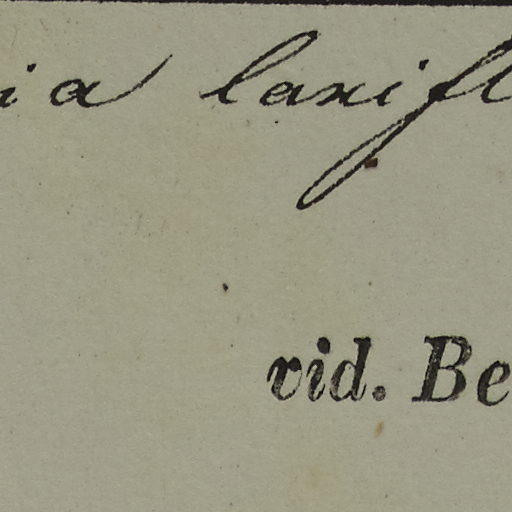 ia laxifl
vid. Be